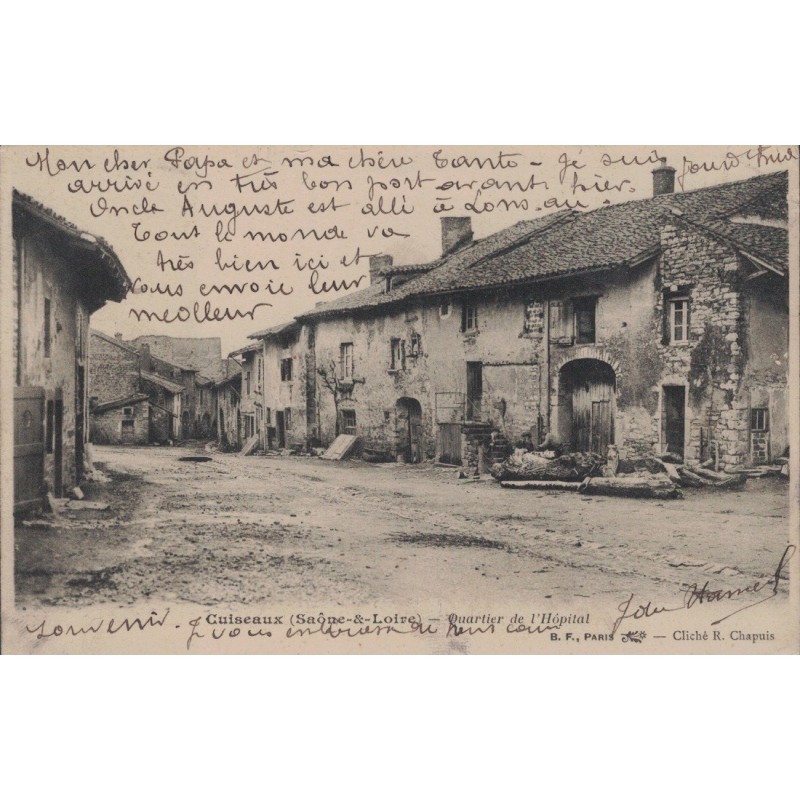 Mon cher Papa et ma chère Tante – je suis
arrivé en très bon port avant hier.
Oncle Auguste est allé à Lons
Tout le monde va
très bien ici et
vous envoie leur
meilleur
souvenir. Je vous
Cuiseaux (Saône-&-Loire) – Quartier de l'Hôpital
B. F., PARIS — Cliché R. Chapuis